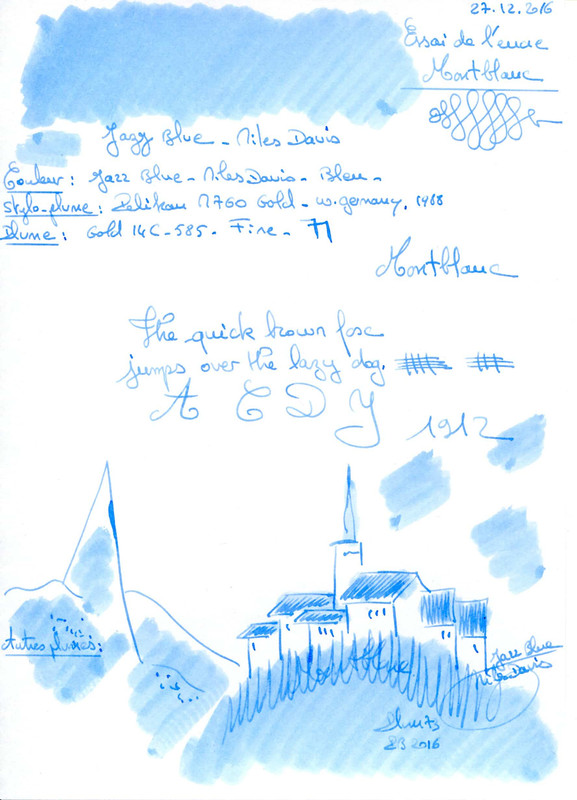 27.12.2016
Essai de l'encre
Montblanc
Jazz Blue - Miles Davis
Couleur: Jazz Blue - Miles Davis - Bleu -
Stylo-plume: Pelikan M760 Gold - w.germany. 1988
Plume: Gold 14C-585 - Fine -
Montblanc
The quick brown fox
jumps over the lazy dog.
A C D Y
1912
Autres plumes:
Montblanc
Jazz Blue
Miles Davis
2016